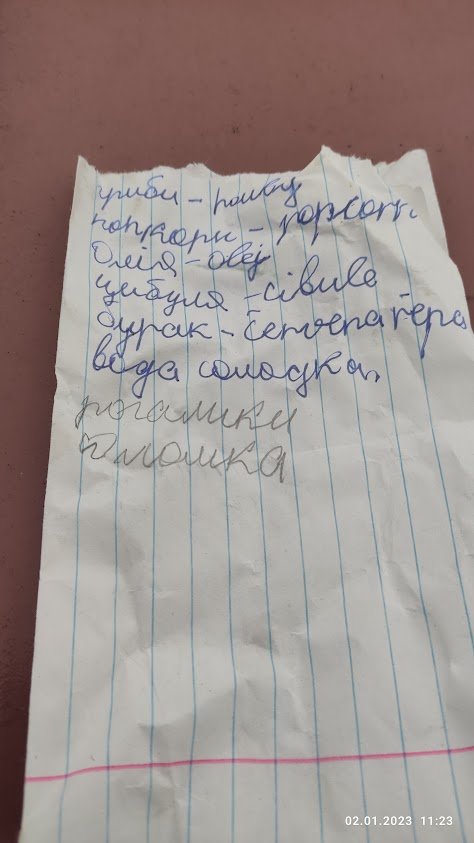 гриби - houby
попкорн - popcorn.
Олія - olej
цибуля - cibule
буряк - červena řepa
вода солодка,
рогалики
Пломка
02.01.2023 11:23